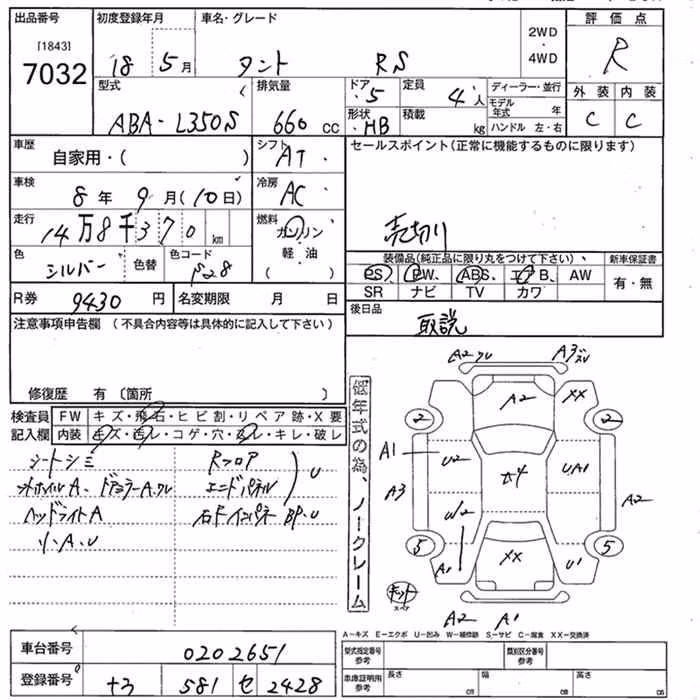 出品番号 初度登録年月 車名・グレード 2WD 評価点
[1843] 4WD R
7032 18 5月 タント RS
外装 内装
型式 排気量 ドア 定員 ディーラー・並行
5 4人 モデル年式 年
C C
ABA-L350S 660cc 形状 HB 積載 kg ハンドル 左・右
車歴 シフト セールスポイント(正常に機能するものに限ります)
自家用・( ) AT
車検 冷房
8年 9月(10日) AC
走行 燃料
14万8千370km ガソリン
売切り
色 色替 色コード 軽油
シルバー S28 ( )
装備品(純正品に限り丸をつけて下さい)、 新車保証書
PS PW、 ABS、 エアB、 AW 有・無
SR ナビ TV カワ
R券 9430円 名変期限 月 日
後日品 取説
注意事項申告欄 (不具合内容等は具体的に記入して下さい)
修復歴 有(箇所 )
検査員 FW キズ・飛石・ヒビ割・リペア跡・X要
記入欄 内装 キズ・汚レ・コゲ・穴・スレ・キレ・破レ
シートシミ Rフロア
ホイルA、ドアミラーA.スレ エンドパネル U
ヘッドライトA 右ドインパネ BP.U
リ・A.U
低年式の為、ノークレーム
A2スレ A3スレ
A2 XX
2 2
A1 U2 A4 UA1
A3 A2
W2
5 A1 XX U1 5
キット
スペア
A2 A1
A−キズ E−エクボ U−凹み W−補修跡 S−サビ C−腐食 XX−交換済
車台番号 0202651
型式指定番号 参考 類別区分番号 参考
登録番号 581 セ 2428
車庫証明用 参考 長さ cm 幅 cm 高さ cm